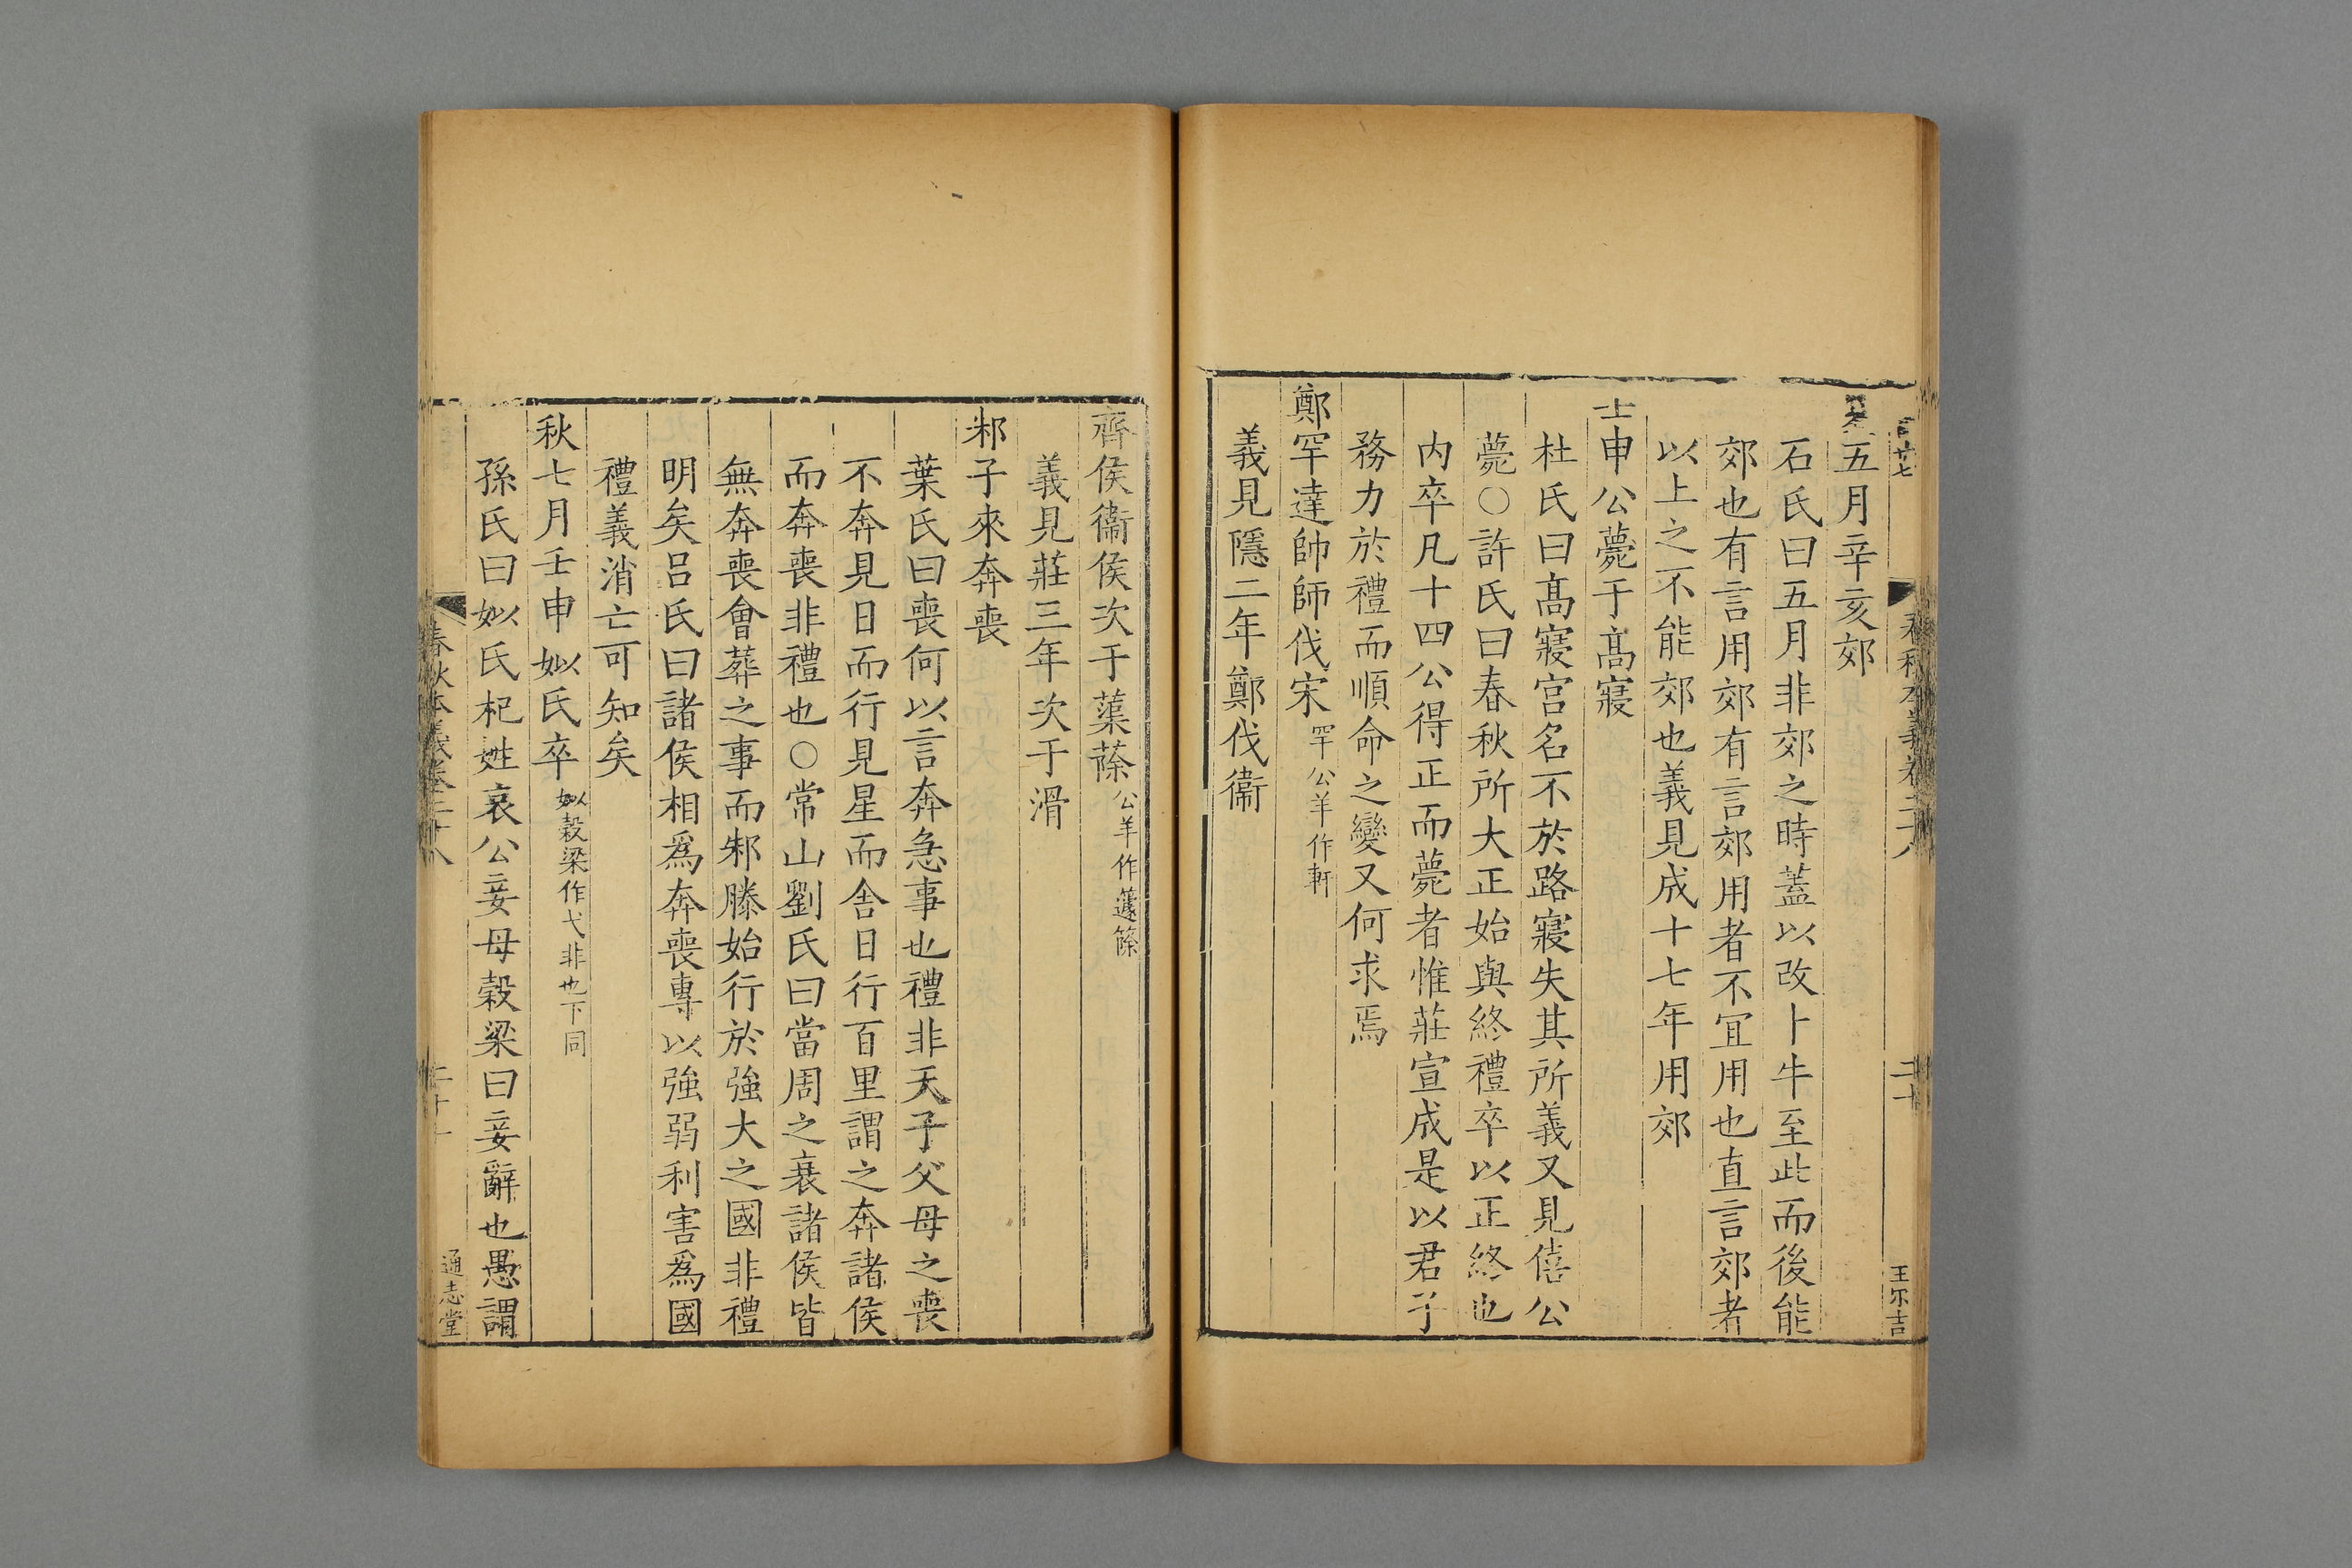 春秋本義卷二十八
二十
王尔吉
五月辛亥郊
石氏曰五月非郊之時蓋以改卜牛至此而後能
郊也有言用郊有言郊用者不宜用也直言郊者
以上之不能郊也義見成十七年用郊
申公薨于髙寢
杜氏曰髙寢宫名不於路寢失其所義又見僖公
薨○許氏曰春秋所大正始與終禮卒以正終也
内卒凡十四公得正而薨者惟莊宣成是以君子
務力於禮而順命之變又何求焉
鄭罕達帥師伐宋罕公羊作軒
義見隱二年鄭伐衞
齊侯衞侯次于蕖蒢公羊作籧篨
義見莊三年次于滑
邾子來奔喪
葉氏曰喪何以言奔急事也禮非天子父母之喪
不奔見日而行見星而舎日行百里謂之奔諸侯
而奔喪非禮也○常山劉氏曰當周之衰諸侯皆
無奔喪會葬之事而邾滕始行於強大之國非禮
明矣吕氏曰諸侯相爲奔喪專以強弱利害爲國
禮義消亡可知矣
秋七月壬申姒氏卒姒穀梁作弋非也下同
孫氏曰姒氏杞姓哀公妾母穀梁曰妾辭也愚謂
春秋本義卷二十八
二十一
通志堂